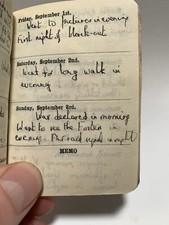 Friday, September 1st.
Went to pictures in evening
First night of black-out
Saturday, September 2nd.
Went for long walk in
evening
Sunday, September 3rd.
War declared in morning
Went to see the in
evening. Air raid in night
MEMO